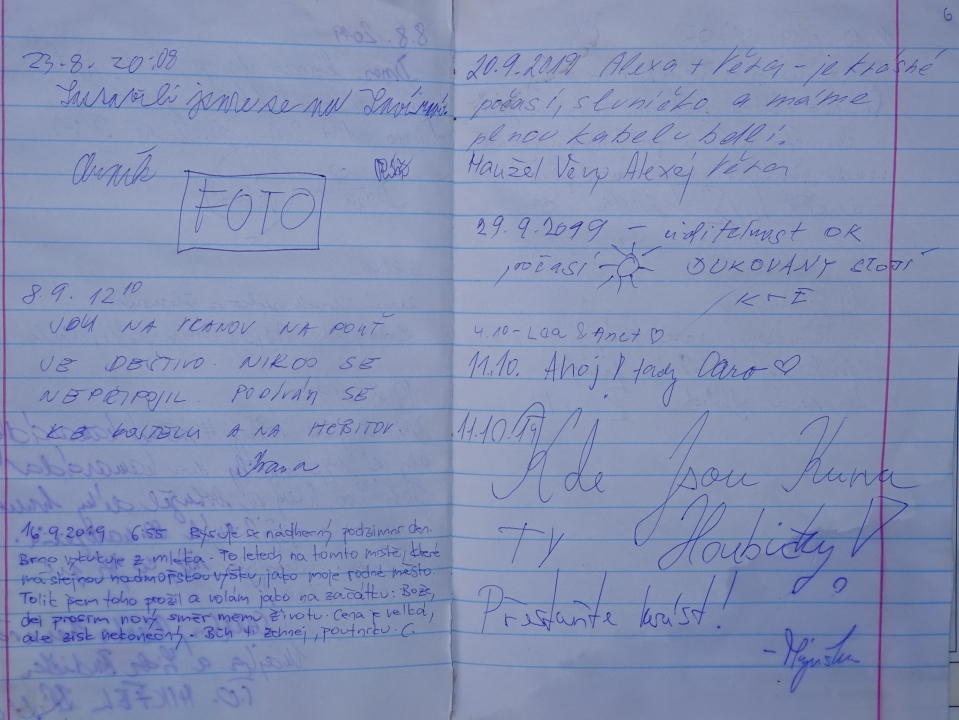 23.8. 20:08
jsme se na
FOTO
8.9. 12 10
JDU NA KANOV NA POUŤ
VE DEŠTIVO. NIKDO SE
NEPŘIPOJIL. PODÍVÁM SE
KE KOSTELU A NA HŘBITOV.
Ivana
16.9.2019 6:55 Rýsuje se nádherný podzimní den.
Brno vykukuje z mléka. Po letech na tomto místě, které
má stejnou nadmořskou výšku, jako moje rodné město.
Tolik jsem toho prožil a volám jako na začátku: Bože,
dej prosím nový směr mému životu. Cena je velká,
ale zisk nekonečný. Bůh ti žehnej, poutníku. C.
6
20.9.2019 Alexa + Věra - je krásné
počasí, sluníčko a máme
plnou kabelu bedlí.
Manžel Věry Alexej Věra
29.9.2019 - viditelnost OK
počasí DUKOVANY STOJÍ
K + E
4.10 - Lea & Anet ♡
11.10. Ahoj! tady Caro ♡
11.10.19
Kde Jsou Kurna
TY Houbičky?
Přestaňte krást!
- Májinka